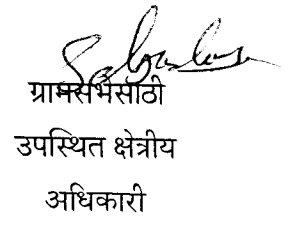 ग्रामसभेसाठी
उपस्थित क्षेत्रीय
अधिकारी